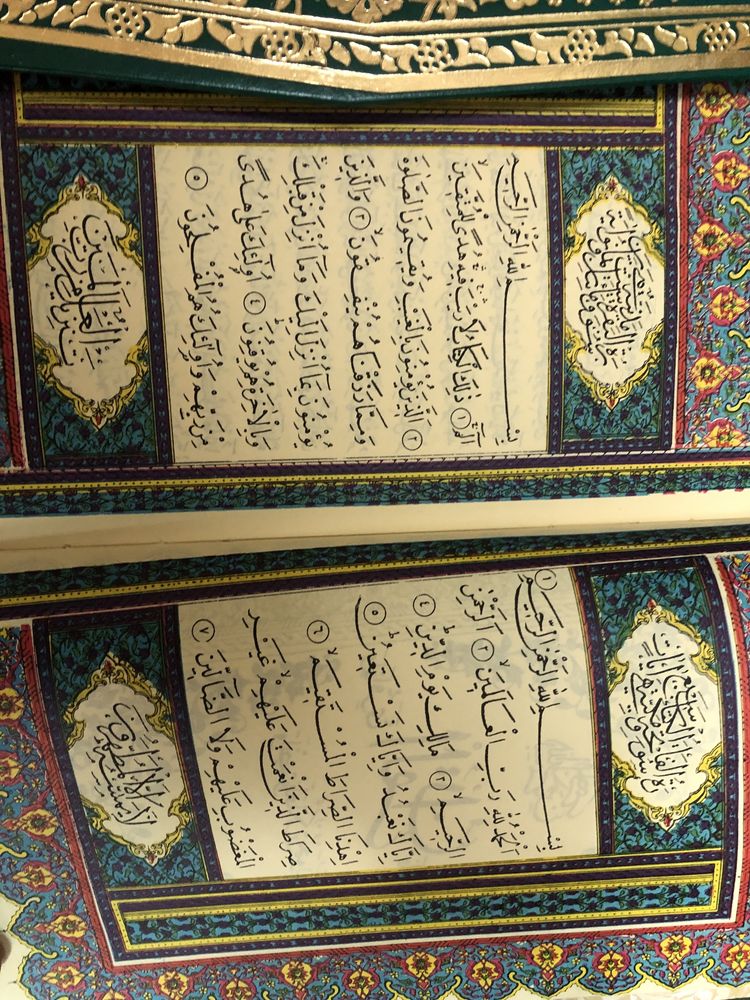 بِسْمِ اللهِ الرَّحْمٰنِ الرَّحِيمِ ١
اَلْحَمْدُ لِلّٰهِ رَبِّ الْعَالَمِينَۙ ٢ اَلرَّحْمٰنِ
الرَّحِيمِۙ ٣ مَالِكِ يَوْمِ الدِّينِۜ ٤
اِيَّاكَ نَعْبُدُ وَاِيَّاكَ نَسْتَعِينُۜ ٥
اِهْدِنَا الصِّرَاطَ الْمُسْتَقِيمَۙ ٦
صِرَاطَ الَّذِينَ اَنْعَمْتَ عَلَيْهِمْۙ غَيْرِ
الْمَغْضُوبِ عَلَيْهِمْ وَلَا الضَّالِّينَ ٧
لَا يَمَسُّهُ اِلَّا الْمُطَهَّرُونَ
بِسْمِ اللهِ الرَّحْمٰنِ الرَّحِيمِ
الٓمٓ ١ ذٰلِكَ الْكِتَابُ لَا رَيْبَۛ فِيهِۛ هُدًى لِلْمُتَّقِينَۙ
٢ اَلَّذِينَ يُؤْمِنُونَ بِالْغَيْبِ وَيُقِيمُونَ الصَّلٰوةَ
وَمِمَّا رَزَقْنَاهُمْ يُنْفِقُونَۙ ٣ وَالَّذِينَ
يُؤْمِنُونَ بِمَا اُنْزِلَ اِلَيْكَ وَمَا اُنْزِلَ مِنْ قَبْلِكَ
وَبِالْاٰخِرَةِ هُمْ يُوقِنُونَۜ ٤ اُولٰئِكَ عَلٰى هُدًى
مِنْ رَبِّهِمْ وَاُولٰئِكَ هُمُ الْمُفْلِحُونَ ٥
تَنْزِيلٌ مِنْ رَبِّ الْعَالَمِينَ